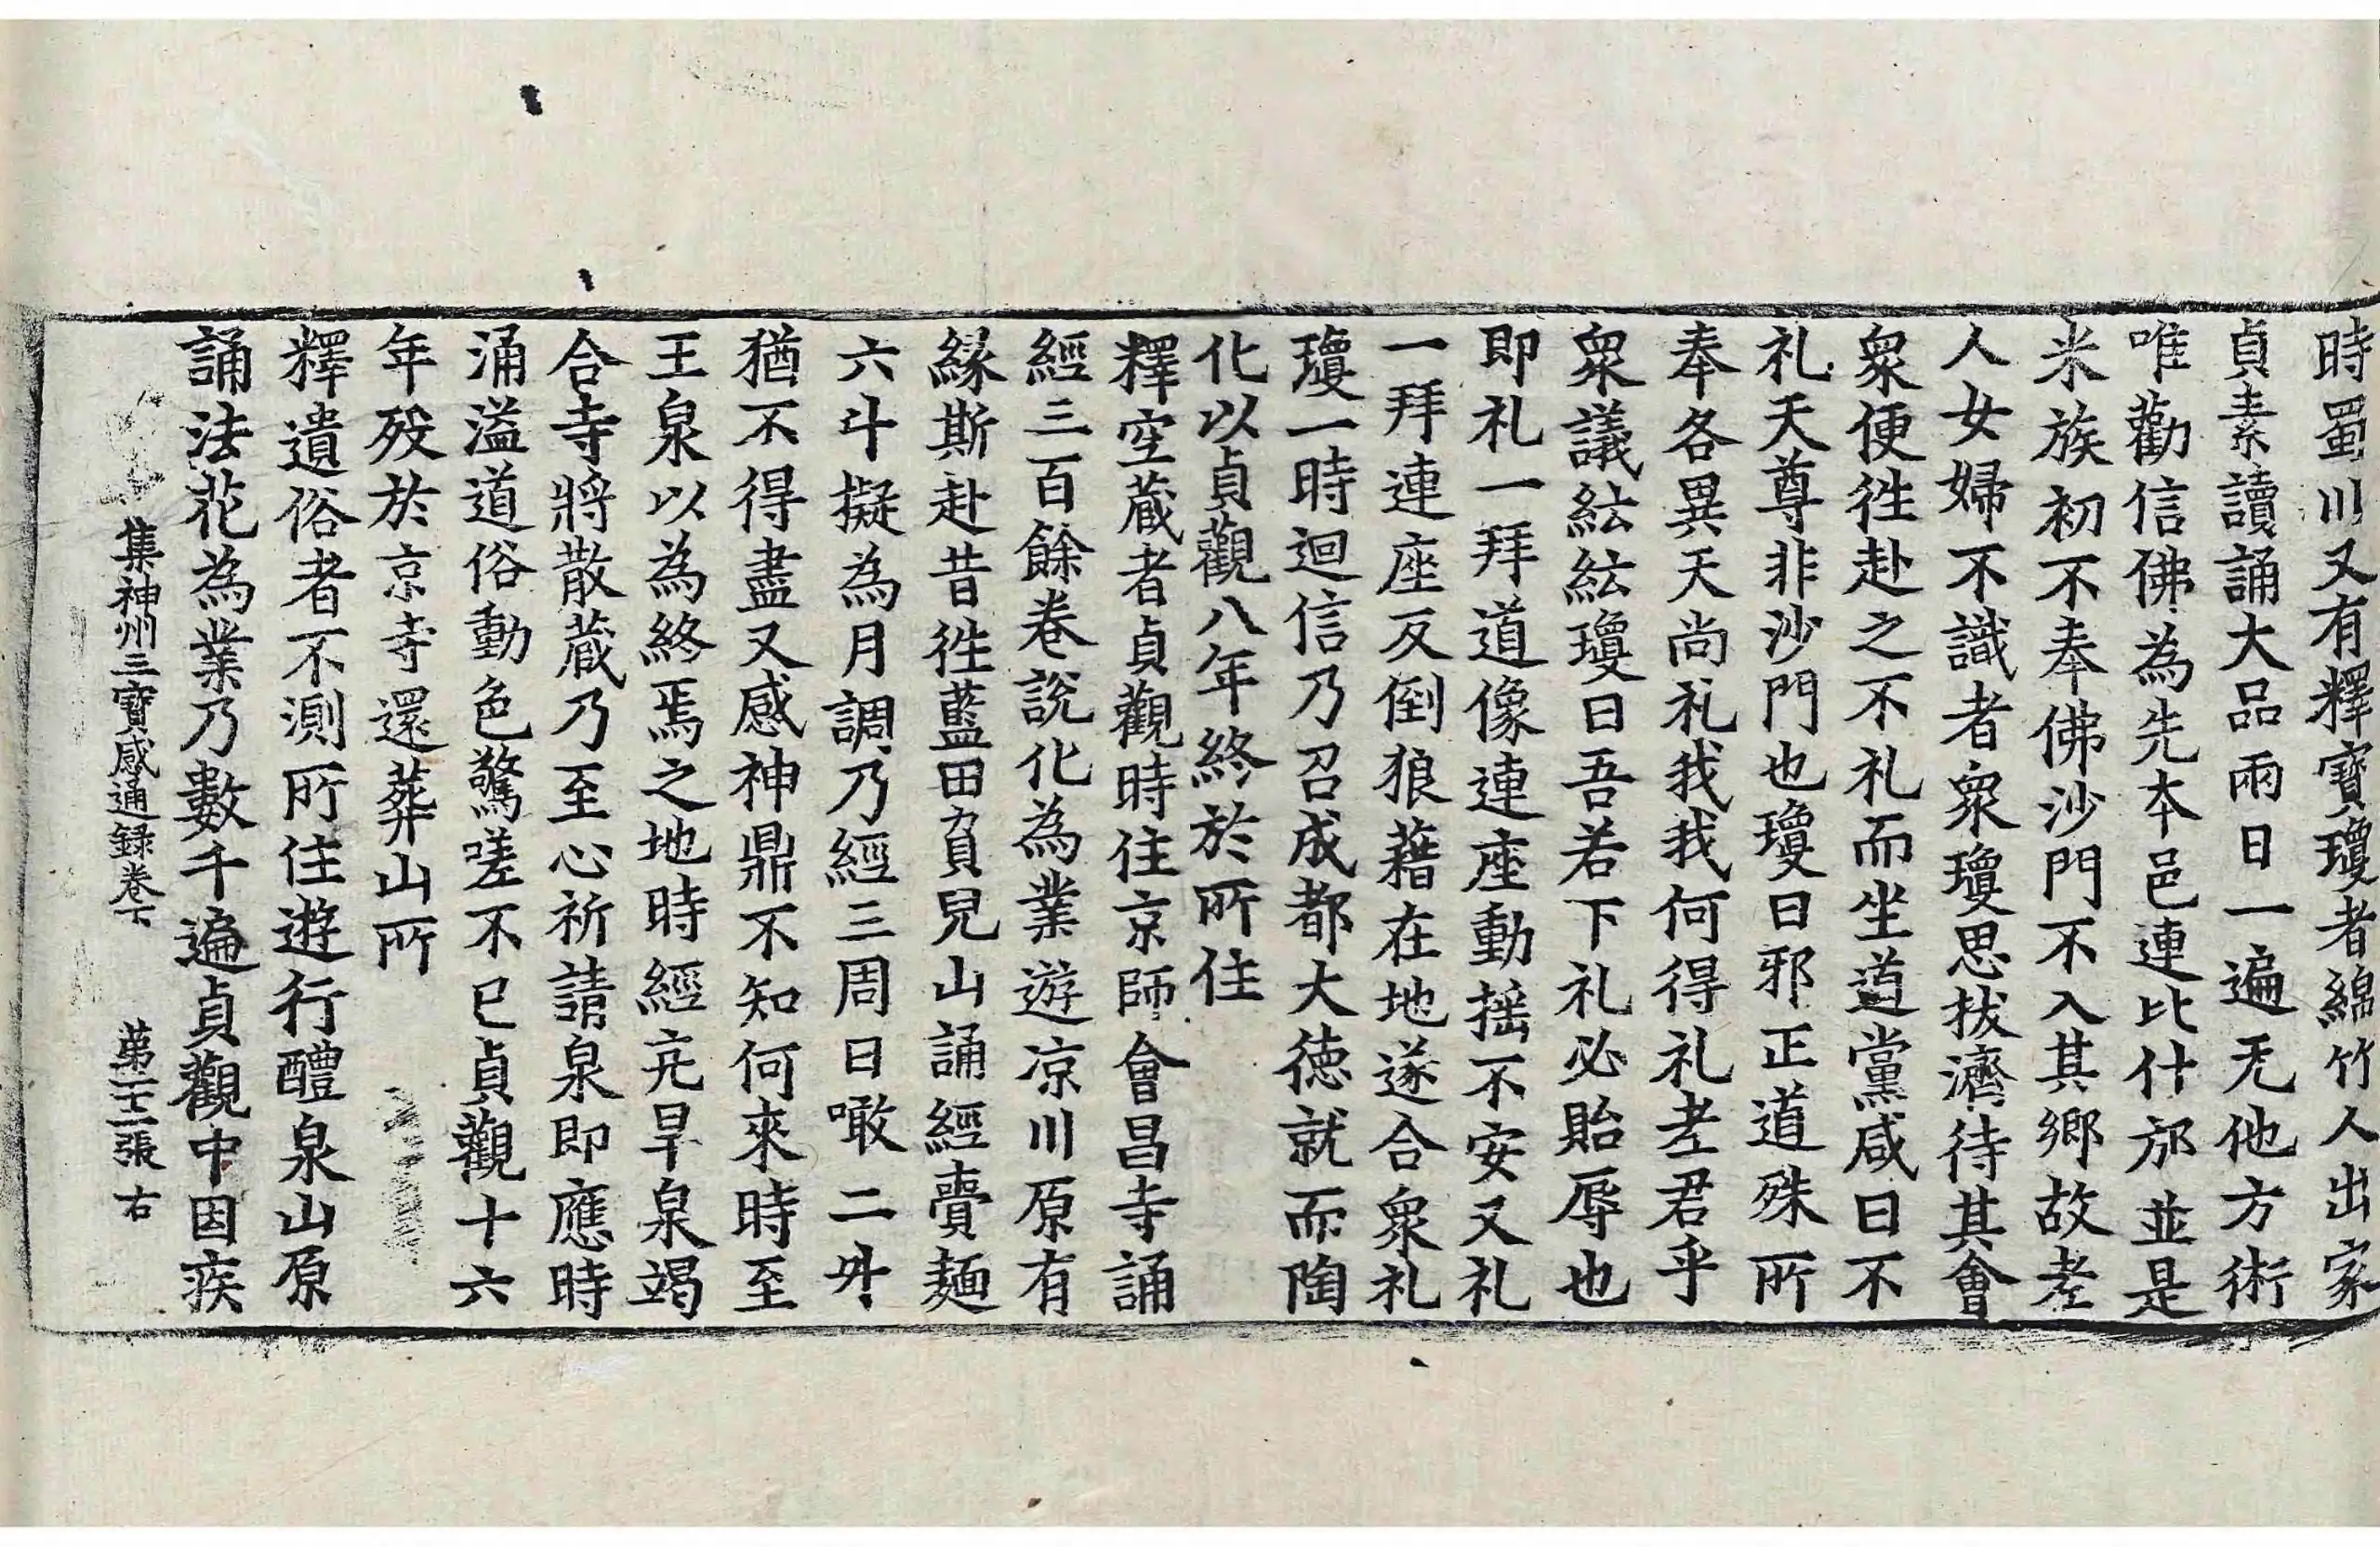 時蜀川又有釋寶瓊者綿竹人出家
貞素讀誦大品兩日一遍无他方術
唯勸信佛為先本邑連比什邡並是
米族初不奉佛沙門不入其鄉故老
人女婦不識者衆瓊思拔濟待其會
衆便徃赴之不礼而坐道黨咸曰不
礼天尊非沙門也瓊曰邪正道殊所
奉各異天尚礼我我何得礼老君乎
衆議紜紜瓊曰吾若下礼必貽辱也
即礼一拜道像連座動摇不安又礼
一拜連座反倒狼藉在地遂合衆礼
瓊一時迴信乃召成都大德就而陶
化以貞觀八年終於所住
釋空藏者貞觀時住京師會昌寺誦
經三百餘卷說化為業遊凉川原有
緣斯赴昔徃藍田負兒山誦經賷麵
六斗擬為月調乃經三周日噉二升
猶不得盡又感神鼎不知何來時至
王泉以為終焉之地時經亢旱泉竭
合寺將散藏乃至心祈請泉即應時
涌溢道俗動色驚嗟不已貞觀十六
年殁於京寺還葬山所
釋遺俗者不測所住遊行醴泉山原
誦法花為業乃數千遍貞觀中因疾
集神州三寶感通録卷下 苐二十二張 右